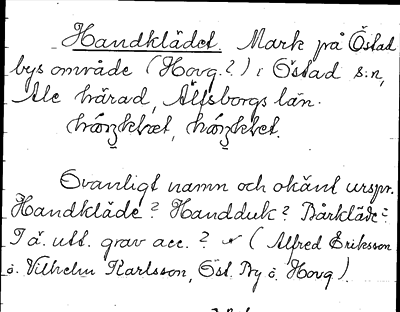 Handklädet. Mark på Östad
bys område (Hovg.?) i Östad s:n,
Ale härad, Älfsborgs län.
Ovanligt namn och okänt urspr.
Handkläde? Handduk? Bårkläde?
I ä. utt. grav acc.? (Alfred Eriksson
o. Vilhelm Karlsson, Öst. By o. Hovg).